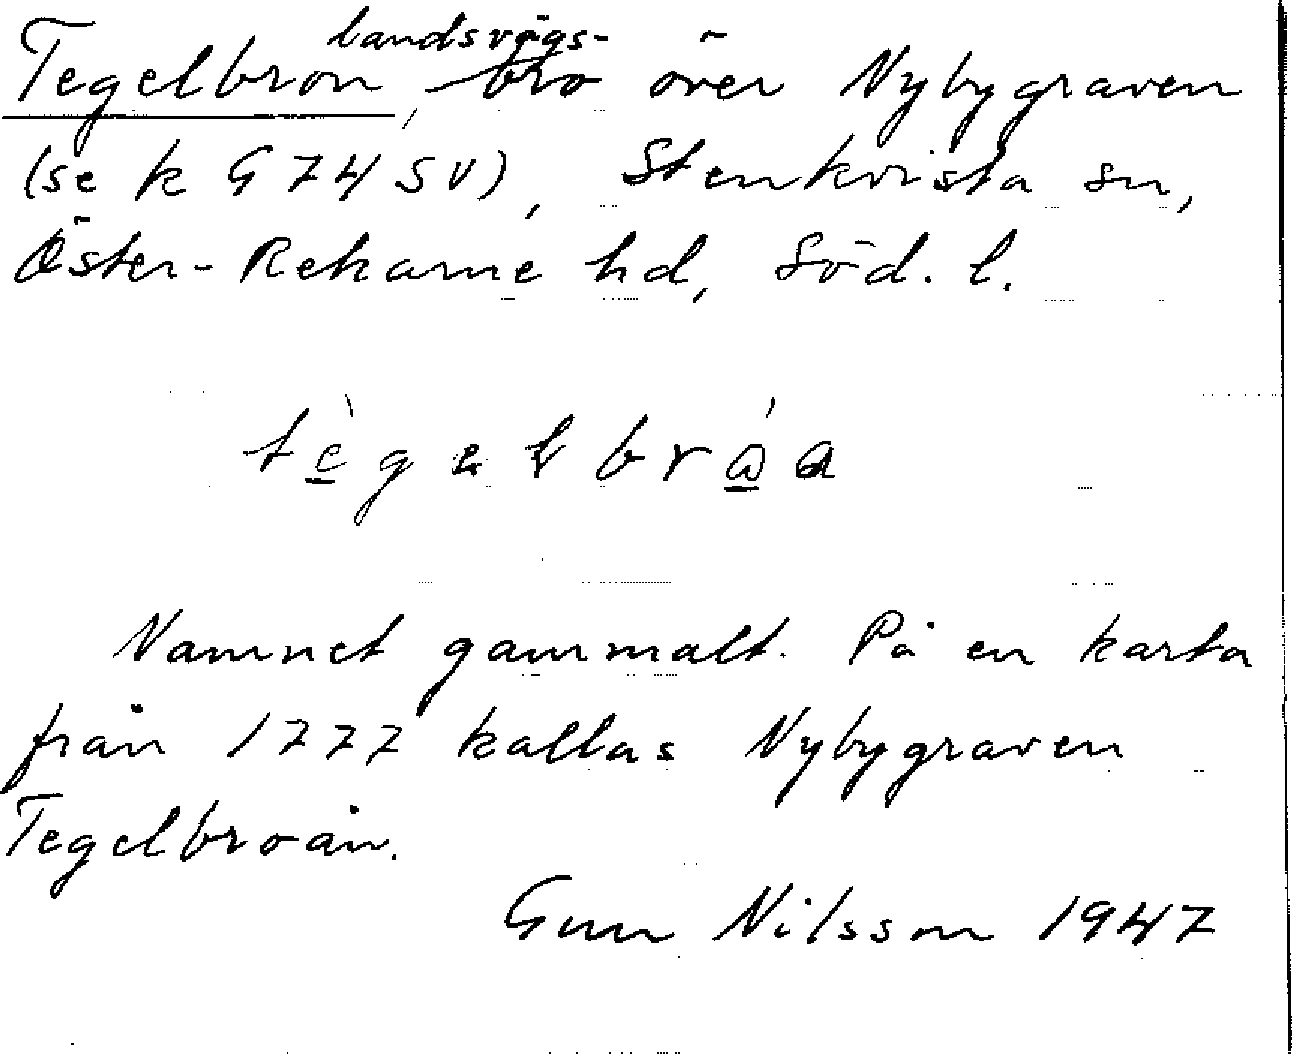 Tegelbron, landsvägsbro över Nybygraven
(se k G 74 SV), Stenkvista sn,
Öster-Rekarne hd, Söd. l.
tègelbròa
Namnet gammalt. På en karta
från 1777 kallas Nybygraven
Tegelbroån.
Gun Nilsson 1947